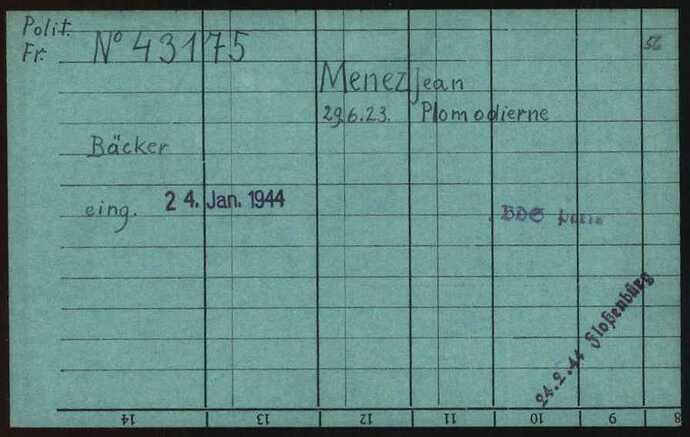 Polit.
Fr. Nº 43175
56
Menez Jean
29.6.23. Plomodierne
Bäcker
eing. 24. Jan. 1944
BDS Paris
24.2.44 Floßenbürg
14 13 12 11 10 9 8